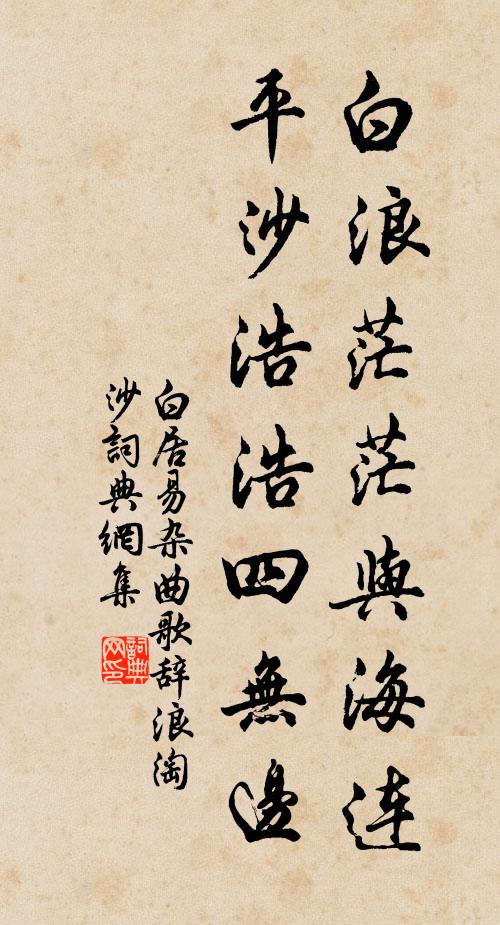 白浪茫茫與海连
平沙浩浩四無邊
白居易杂曲歌辞浪淘
沙詞典網集
詞典网印